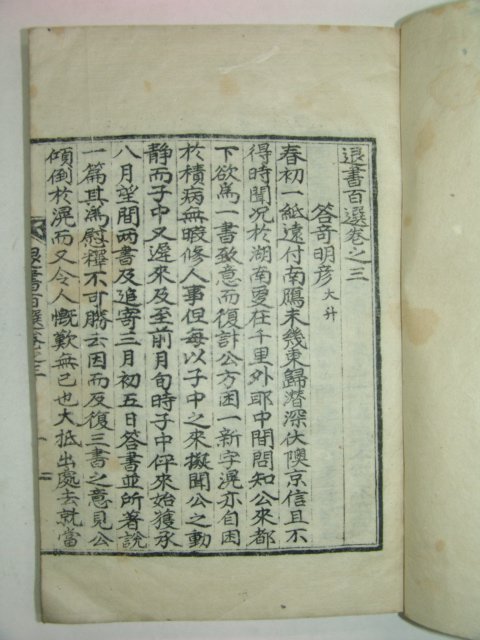 退書百選卷之三
答奇明彦大升
春初一紙遠付南鴈未幾東歸潜深伏隩京信且不
得時聞况於湖南爰在千里外耶中間問知公來都
下欲爲一書致意而復計公方困一新字滉亦自困
於積病無暇修人事但每以子中之來擬聞公之動
靜而子中又遲來及至前月旬時子中伻來始獲承
八月望間兩書及追寄三月初五日答書並所著說
一篇其爲慰釋不可勝去因而及復三書之意見公
傾倒於滉而又令人慨歎無已也大抵出處去就當
退書百選卷之三